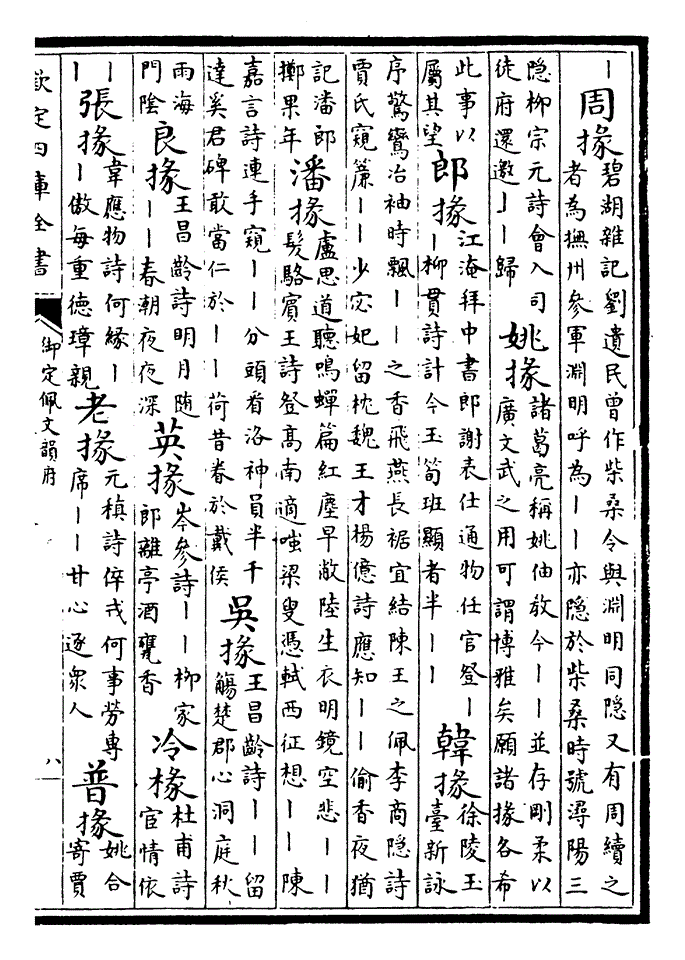 丨周掾碧湖雜記劉遺民曾作柴桑令與淵明同隱又有周續之
者為撫州參軍淵明呼為丨丨亦隱於柴桑時號潯陽三
隱柳宗元詩會入司
徒府還邀丨丨歸
姚掾諸葛亮稱姚伷教今丨丨並存剛柔以
廣文武之用可謂博雅矣願諸掾各希
此事以
屬其望
郎掾江淹拜中書郎謝表仕通物任官登丨
丨柳貫詩計今玉筍班顯者半丨丨
韓掾徐陵玉
臺新詠
序驚鸞冶袖時飄丨丨之香飛燕長裾宜結陳王之佩李商隱詩
賈氏窺簾丨丨少宓妃留枕魏王才楊億詩應知丨丨偷香夜猶
記潘郎
擲果年
潘掾盧思道聽鳴蟬篇紅塵早敝陸生衣明鏡空悲丨丨
髮駱賓王詩登髙南適嗤梁叟憑軾西征想丨丨陳
嘉言詩連手窺丨丨分頭看洛神員半千
達奚君碑敢當仁於丨丨荷昔眷於戴侯
吳掾王昌齡詩丨丨留
觴楚郡心洞庭秋
雨海
門陰
良掾王昌齡詩明月随
丨丨春朝夜夜深
英掾岑參詩丨丨柳家
郎離亭酒甕香
冷掾杜甫詩
宦情依
丨
丨
張掾韋應物詩何縁丨
丨傲每重德璋親
老掾元稹詩倅戎何事勞專
席丨丨甘心逐衆人
普掾姚合
寄賈
欽定四庫全書
御定佩文韻府
八